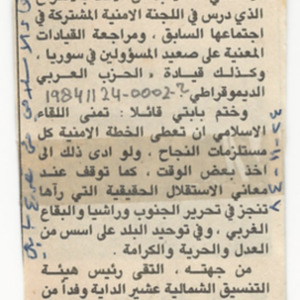 الذي درس في اللجنة الامنية المشتركة في
اجتماعها السابق ، ومراجعة القيادات
المعنية على صعيد المسؤولين في سوريا ،
وكـذلـك قيـادة « الحـزب العـربي
الديموقراطي 19841124-0002-2
وختم يابتي قائلا : تمنى اللقاء
الاسلامي ان تعطى الخطة الامنية كل
مستلزمات النجاح ، ولو ادى ذلك الى
اخذ بعض الوقت ، كما توقف عند
معاني الاستقلال الحقيقية التي رآها
تنجز في تحرير الجنوب وراشيا والبقاع
الغربي ، وفي توحيد البلد على اسس من
العدل والحرية والكرامة .
من جهتـه ، التقى رئيس هيئـة
التنسيق الشمالية عشير الداية وفدا من